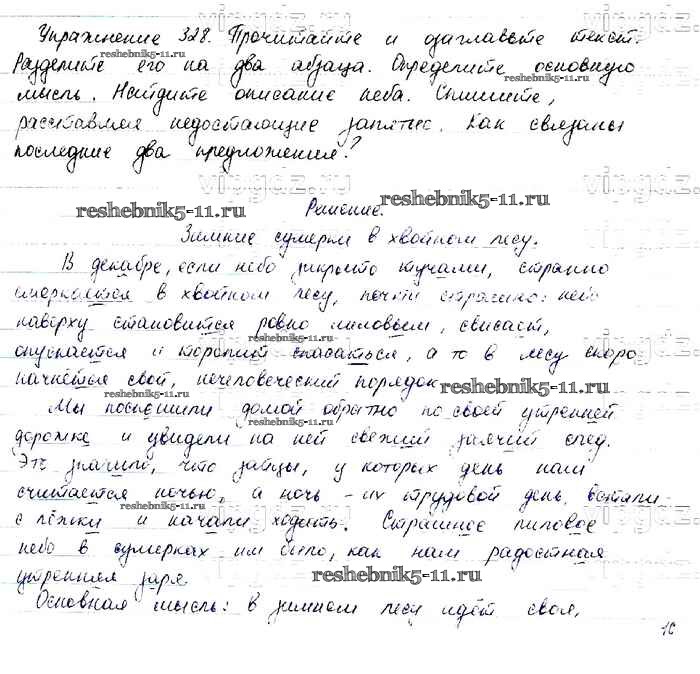 Упражнение 328. Прочитайте и озаглавьте текст.
Разделите его на два абзаца. Определите основную
мысль. Найдите описание неба. Спишите,
расставляя недостающие запятые. Как связаны
последние два предложения?
Решение.
Зимние сумерки в хвойном лесу.
В декабре, если небо закрыто тучами, странно
смеркается в хвойном лесу, почти страшно: небо
наверху становится ровно лиловым, свисает,
опускается и торопит спасаться, а то в лесу скоро
начнётся свой, нечеловеческий порядок
Мы поспешили домой обратно по своей утренней
дорожке и увидели на ней свежий заячий след.
Это значило, что зайцы, у которых день наш
считается ночью, а ночь - их трудовой день, встали
с лёжки и начали ходить. Страшное лиловое
небо в сумерках им было, как нам радостная
утренняя заря
Основная мысль: в зимнем лесу идёт своя,
10
reshebnik5-11.ru
reshebnik5-11.ru
reshebnik5-11.ru
reshebnik5-11.ru
reshebnik5-11.ru
reshebnik5-11.ru
reshebnik5-11.ru
reshebnik5-11.ru
reshebnik5-11.ru
reshebnik5-11.ru